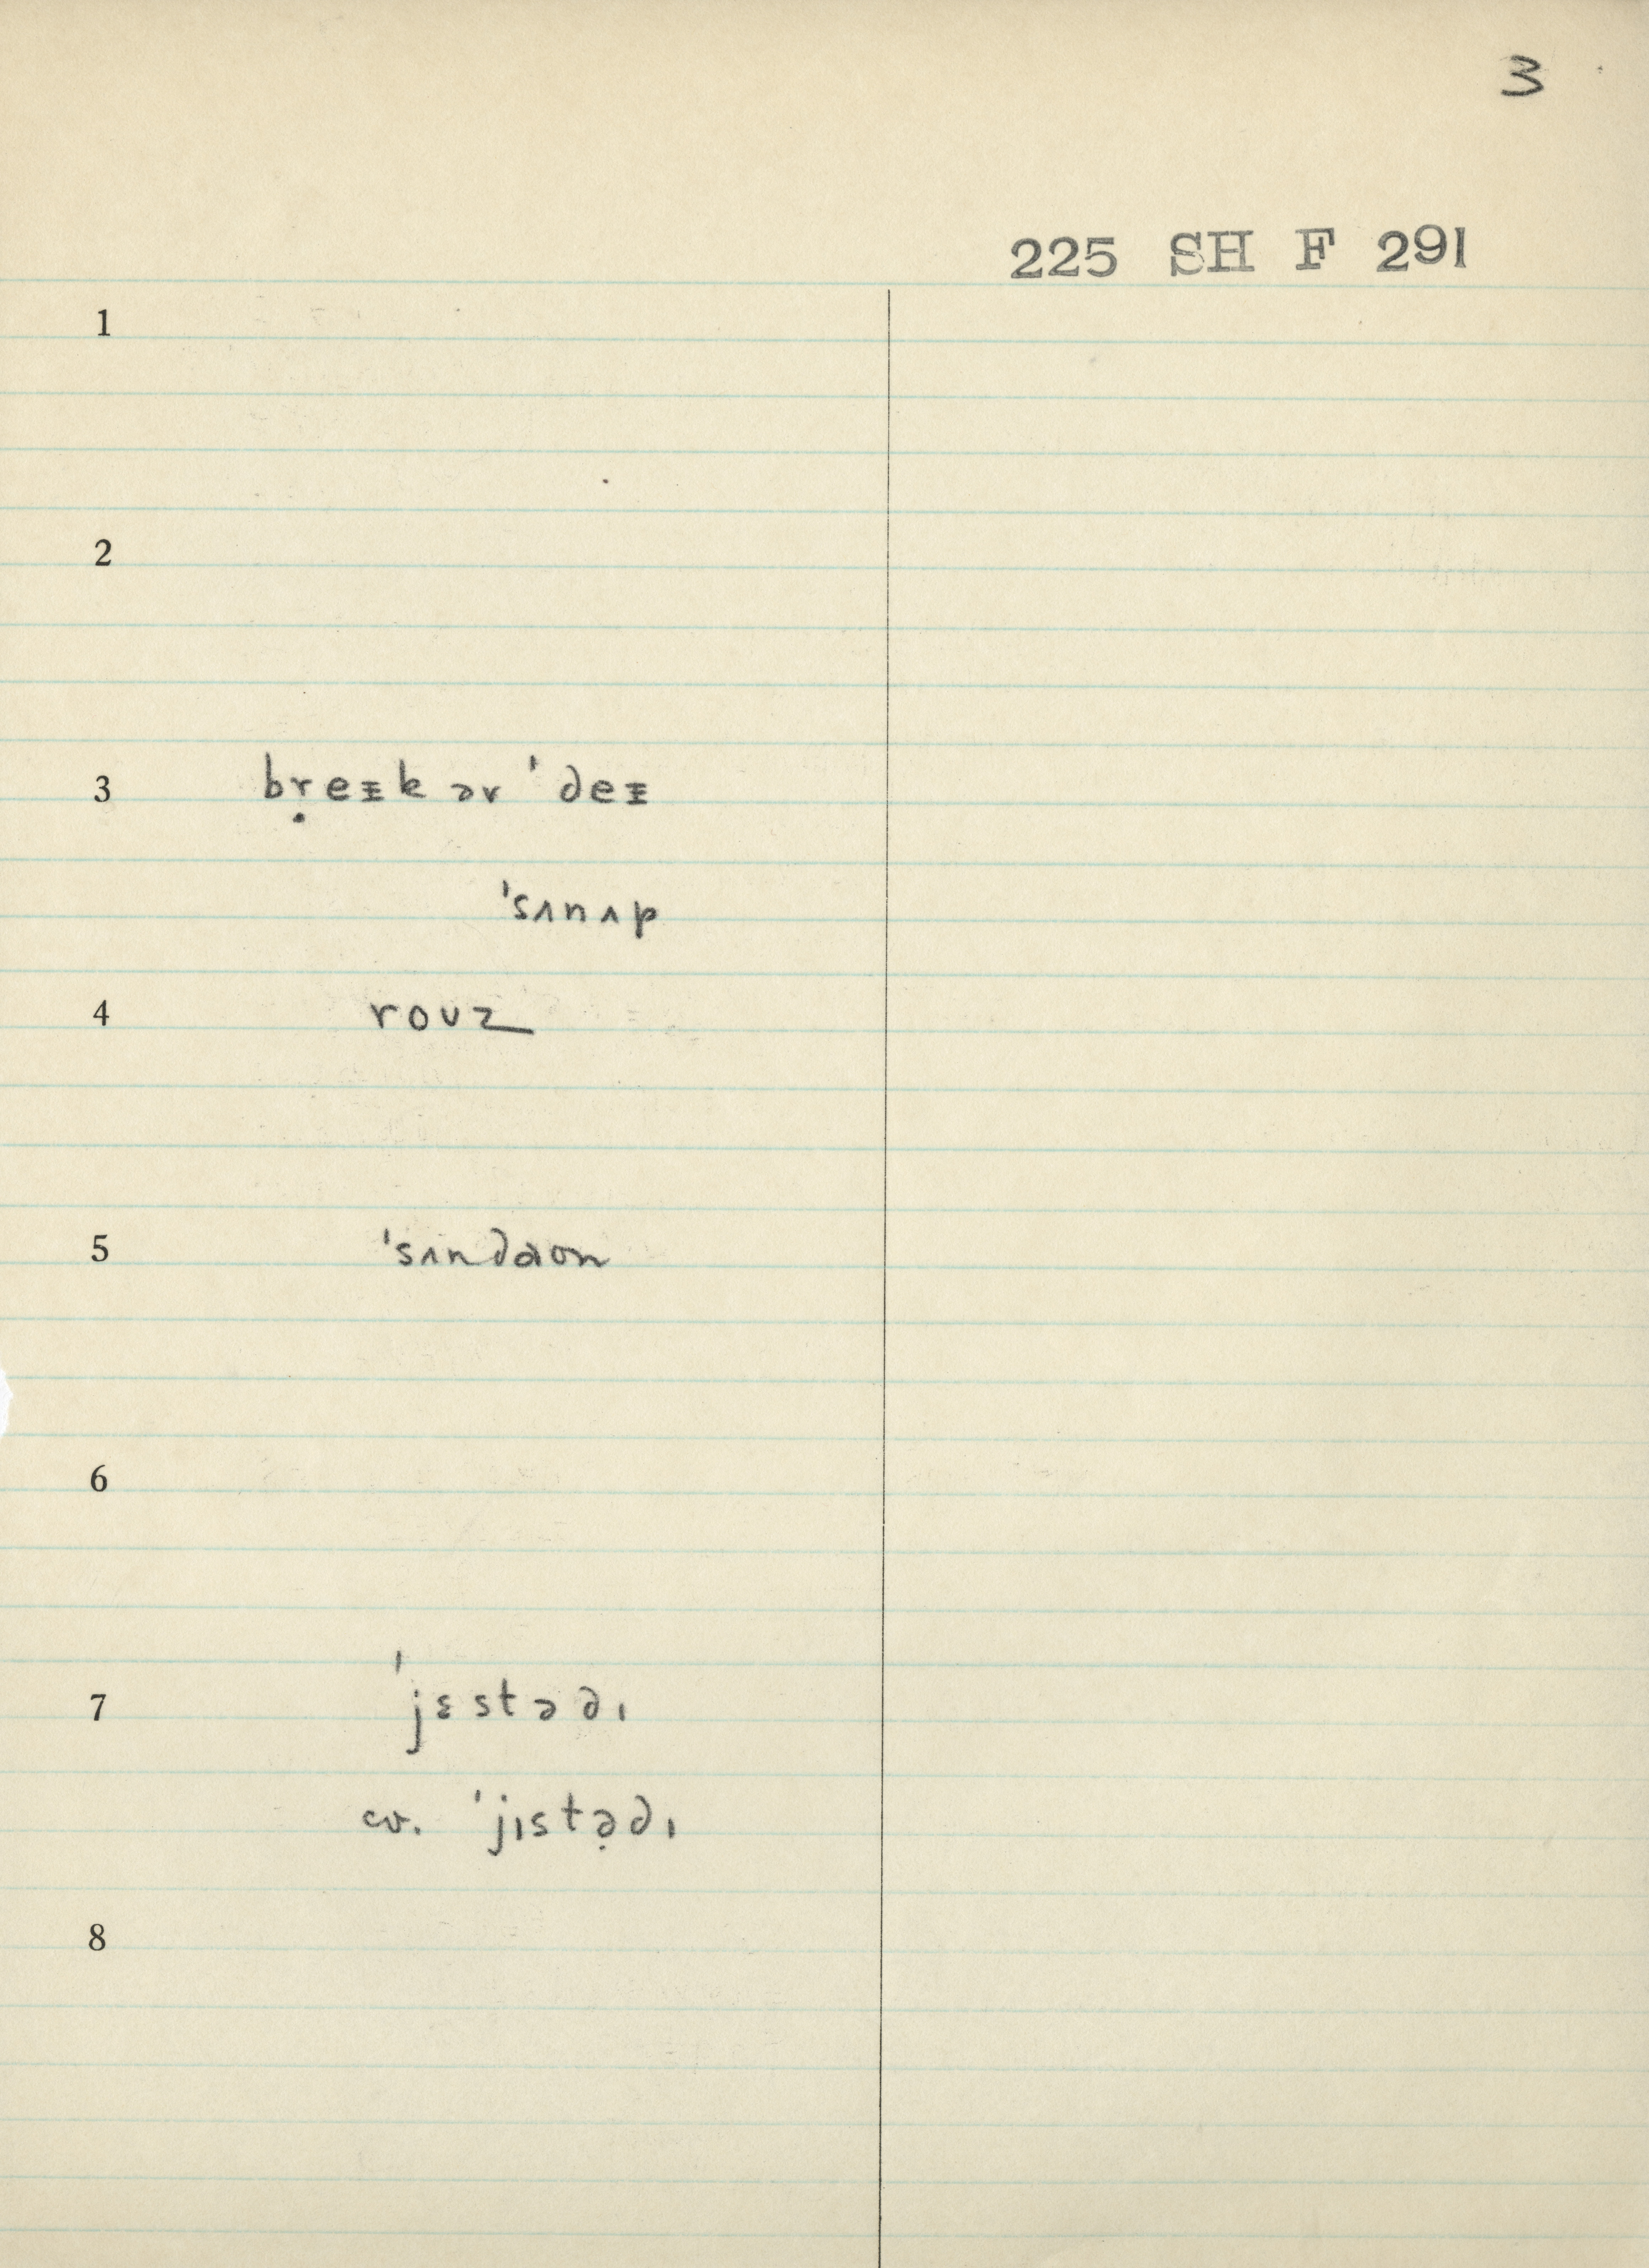 3
225 SH F 291
1
2
3 bṛeᵻk ər ˈdeᵻ
ˈsʌnʌp
4 roʊz
5 ˈsʌndaʊn
6
7 ˈjɛstədɪ
cv. ˈjɪstə̣dɪ
8